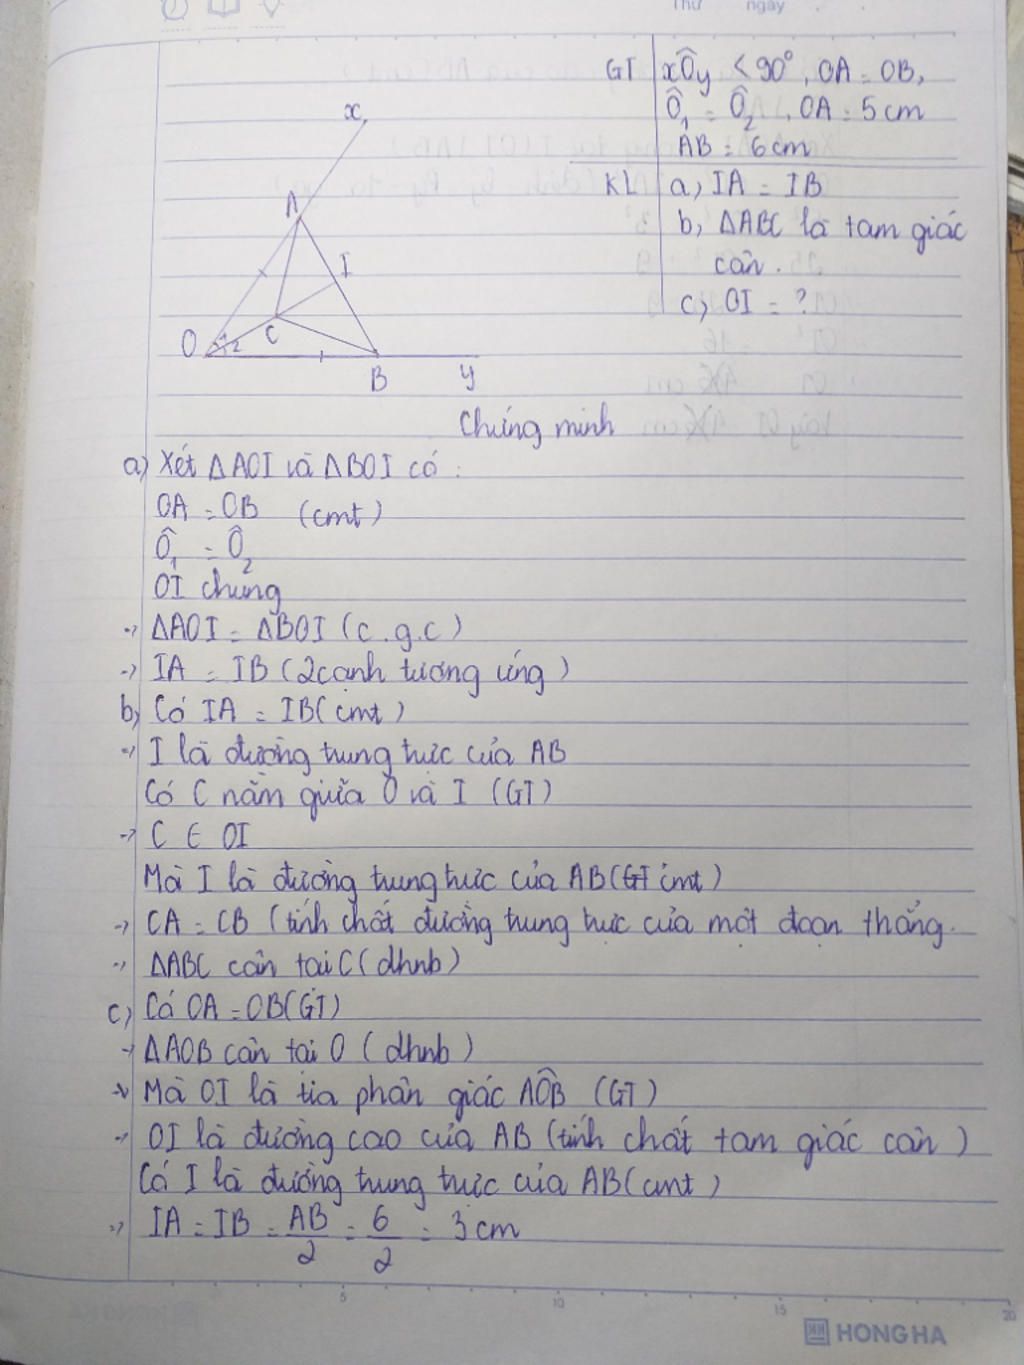 Thứ ngày
GT xÔy < 90°, OA = OB,
Ô₁ = Ô₂, OA = 5cm
AB = 6cm
KL a, IA = IB
b, ΔABC là tam giác
cân.
c, OI = ?
x
A
I
O 1 2
C
B
y
Chứng minh
a) Xét ΔAOI và ΔBOI có:
OA = OB (cmt)
Ô₁ = Ô₂
OI chung
-> ΔAOI = ΔBOI (c.g.c)
-> IA = IB (2 cạnh tương ứng)
b) Có IA = IB (cmt)
-> I là đường trung trực của AB
Có C nằm giữa O và I (GT)
-> C ∈ OI
Mà I là đường trung trực của AB (GT cmt)
-> CA = CB (tính chất đường trung trực của một đoạn thẳng.
-> ΔABC cân tại C (dhnb)
c) Có OA = OB (GT)
-> ΔAOB cân tại O (dhnb)
-> Mà OI là tia phân giác AÔB (GT)
-> OI là đường cao của AB (tính chất tam giác cân)
Có I là đường trung trực của AB (cmt)
-> IA = IB = AB/2 = 6/2 = 3cm
5 10 15 20
HONG HA